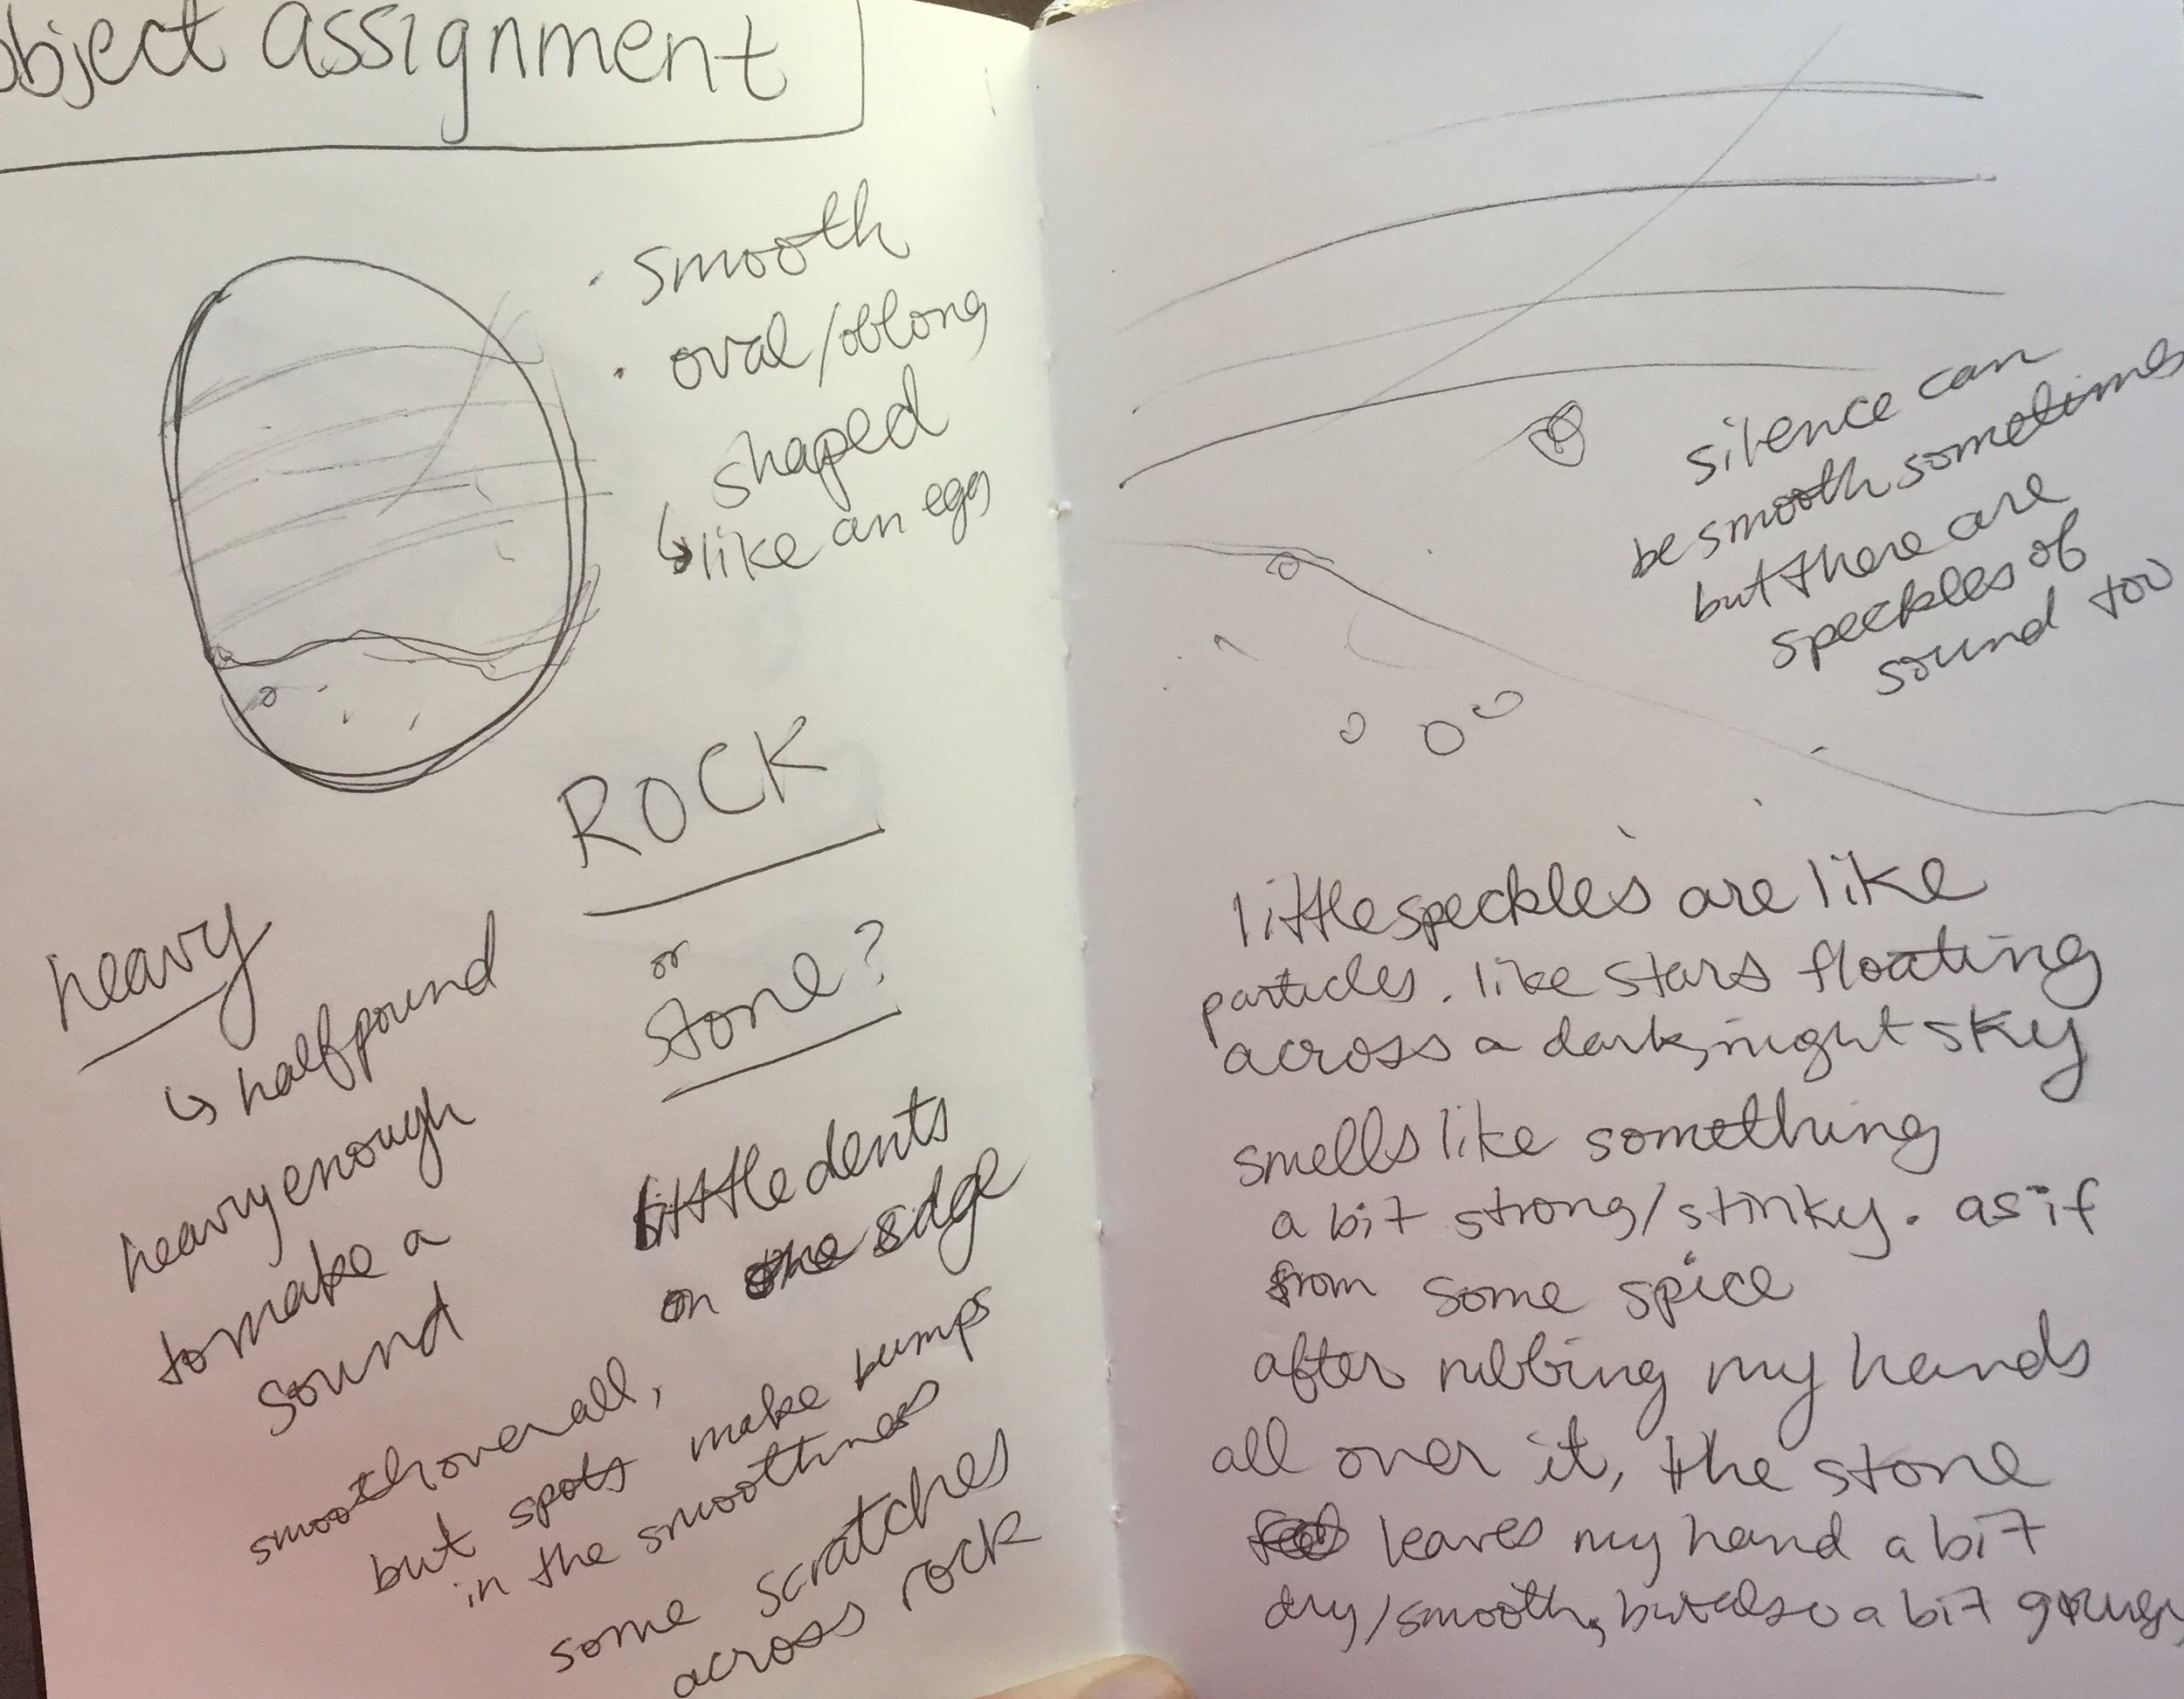 object assignment
· smooth
· oval/oblong
shaped
↳ like an egg
ROCK
or
stone?
heavy
↳ half pound
heavy enough
to make a
sound
little dents
on the edge
smooth overall,
but spots make bumps
in the smoothness
some scratches
across rock
silence can
be smooth sometimes
but there are
speckles of
sound too
little speckles are like
particles. like stars floating
across a dark, night sky
smells like something
a bit strong/stinky. as if
from some spice
after rubbing my hands
all over it, the stone
leaves my hand a bit
dry/smooth, but also a bit